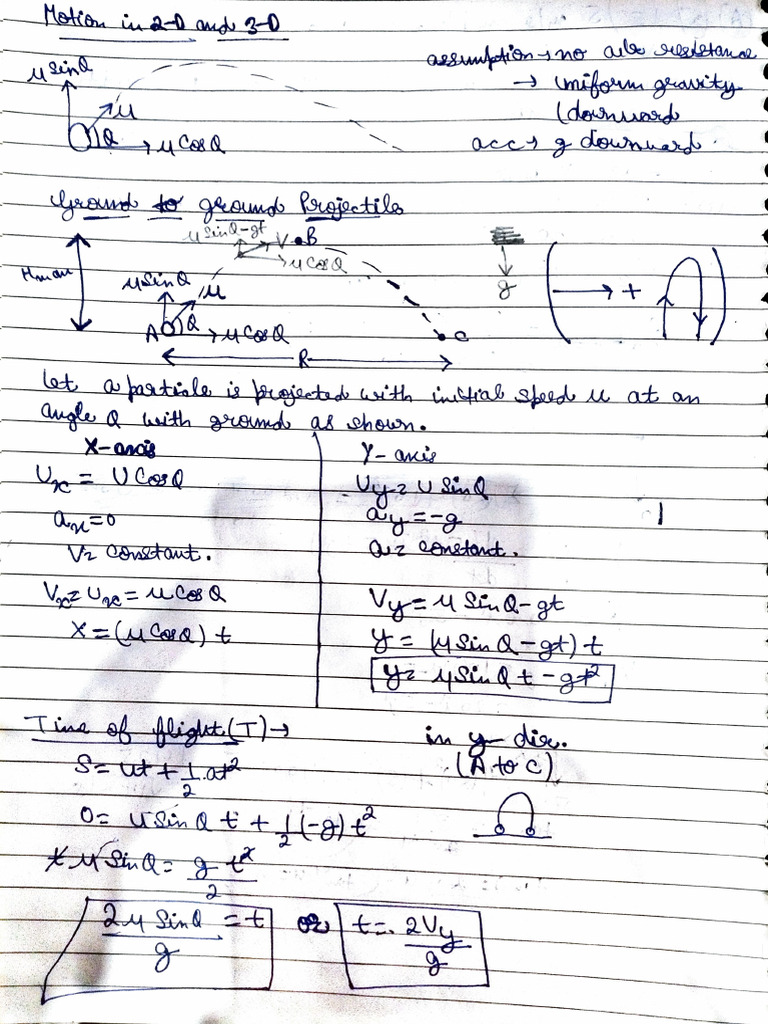 Motion in 2-D and 3-D
assumption → no air resistance
→ uniform gravity
(downward
acc → g downward.
u sinθ
u
θ
u cosθ
Ground to ground Projectile
u sinθ-gt
V
B
u cosθ
Hmax
u sinθ
u
A
θ
u cosθ
C
g
+
R
Let a particle is projected with initial speed u at an
angle θ with ground as shown.
X-axis
Ux = U cosθ
ax = 0
V = constant.
Vx = Ux = u cosθ
X = (u cosθ) t
Y-axis
Uy = U sinθ
ay = -g
a = constant.
Vy = u sinθ - gt
y = (u sinθ - gt) t
y = u sinθ t - gt²
Time of flight (T) →
in y dir.
(A to C)
S = ut + 1/2 at²
0 = u sinθ t + 1/2 (-g) t²
t u sinθ = g t²/2
2u sinθ/g = t or t = 2Vy/g